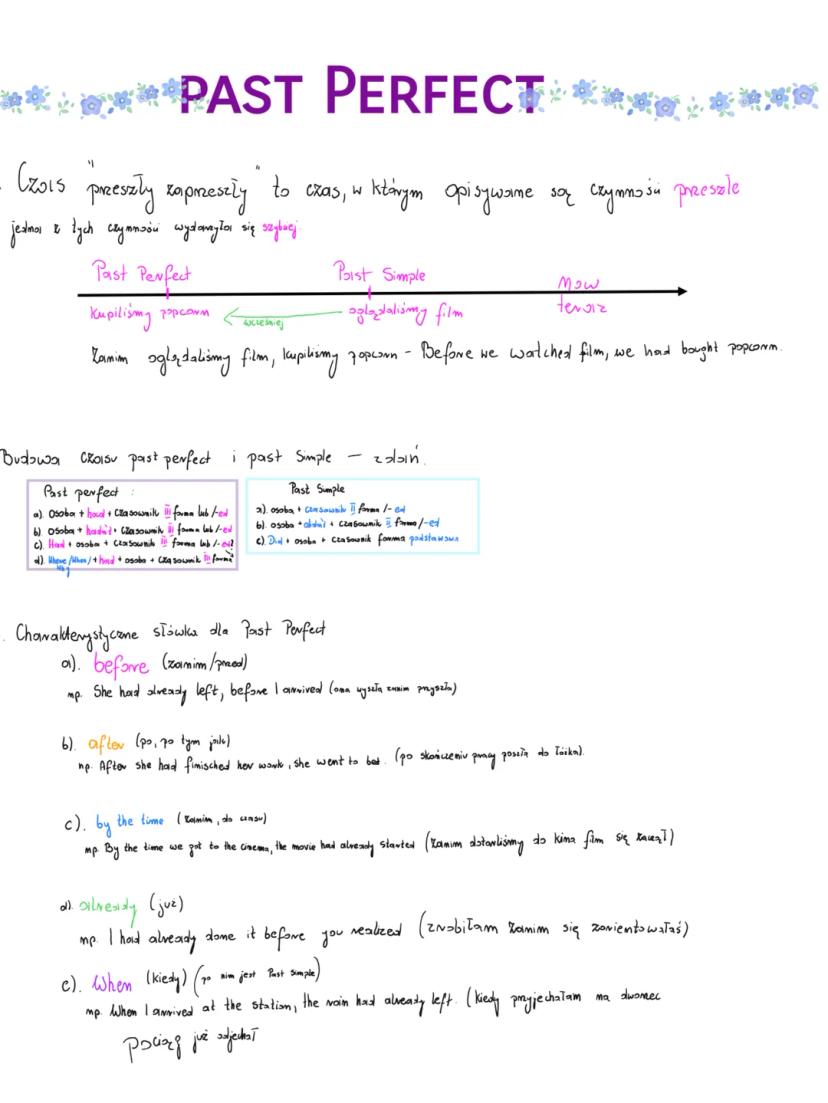 PAST PERFECT
Czas "przeszły zaprzeszły" to czas, w którym opisywane są czynności przeszłe
jedna z tych czynności wydarzyła się szybciej
Past Perfect Past Simple Now
kupiliśmy popcorn wcześniej oglądaliśmy film teraz
Zanim oglądaliśmy film, kupiliśmy popcorn - Before we watched film, we had bought popcorn.
Budowa czasu past perfect i past Simple - zdań.
Past perfect :
a). osoba + had + czasownik III forma lub /-ed
b). osoba + hadn't + czasownik III forma lub /-ed
c). Had + osoba + czasownik III forma lub /-ed?
d). Where/When/ + had + osoba + czasownik III forma
Why
Past Simple
a). osoba + czasownik II forma /-ed
b). osoba + didn't + czasownik II forma /-ed
c). Did + osoba + czasownik forma podstawowa
Charakterystyczne słówka dla Past Perfect
a). before (zanim/przed)
np. She had already left, before I arrived (ona wyszła zanim przyszła)
b). after (po, po tym jak)
np. After she had finisched her work, she went to bet. (po skończeniu pracy poszła do łóżka).
c). by the time (zanim, do czasu)
np. By the time we got to the cinema, the movie had already started (zanim dotarliśmy do kina film się zaczął)
d). already (już)
np. I had already done it before you realized (zrobiłam zanim się zorientowałaś)
e). When (kiedy) (po nim jest Past Simple)
np. When I arrived at the station, the train had already left. (kiedy przyjechałam na dworzec
pociąg już odjechał